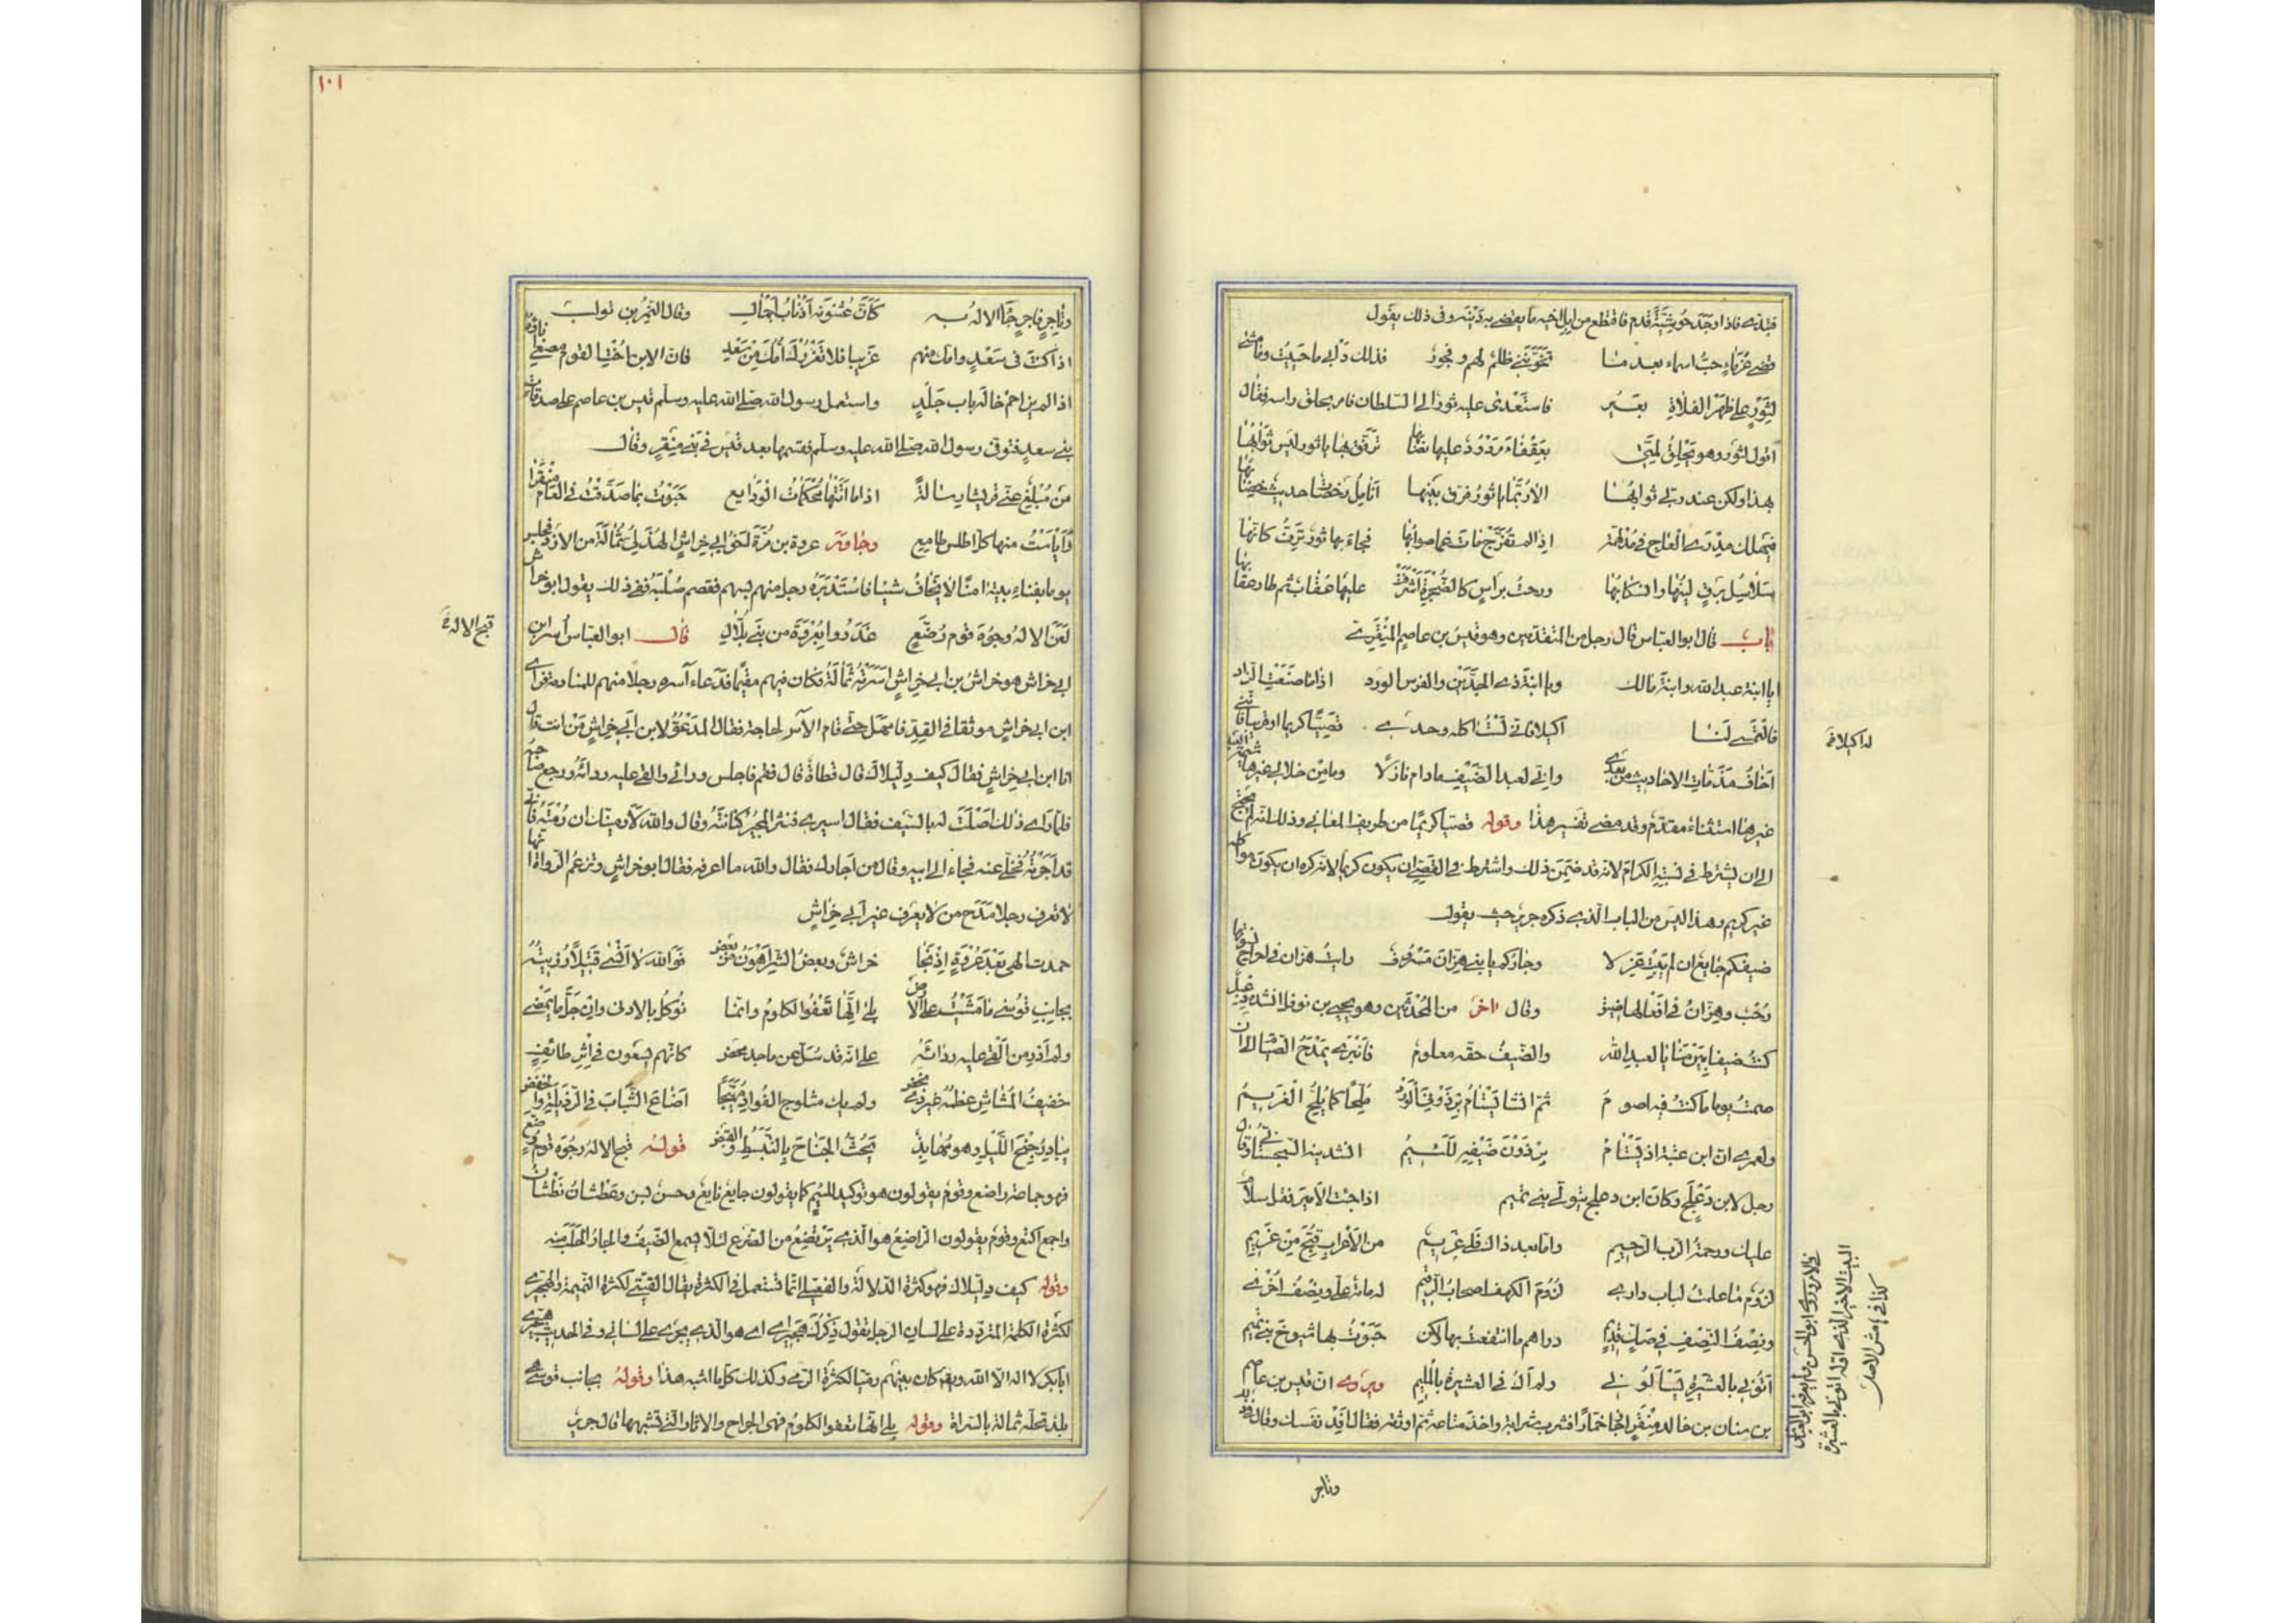 فاذا وجد حوشية قدم فاقتطع من ابل اخيه ما يقضى به دينه وفى ذلك يقول
قضى غرماى حب اسماء بعد ما تخوننى ظلم لهم وفجور فذلك دابى ما حييت وما مشى
لثور على ظهر الفلاة بعير فاستعدى عليه ثور الى السلطان فامر بحلق راسه فقال
اقول لثور وهو يحلق لمتى بعقفاء مردود عليها نصابها ترفق بها يا ثور ليس ثوابها
بهذا ولكن عند ربى ثوابها الا ربما يا ثور فرق بينها انامل رخصات حديث خضابها
فتهلك مدرى العاج فى مدلهمة اذا لم تفرج مات غما صوابها فجاء بها ثور ترف كانها
سلاسل برق لينها وانسكابها ورحت براس كالصخيرة اشرفت عليها عقاب ثم طار عقابها
باب قال ابو العباس قال رجل من المتقدمين وهو قيس بن عاصم المنقرى
ايا ابنة عبد الله وابنة مالك ويا ابنة ذى الجدين والفرس الورد اذا ما صنعت الزاد
فالتمسى لنا اكيلا فانى لست اكله وحدى قصيا كريما او قريبا فاننى
اخاف مذمات الاحاديث من بعدى وانى لعبد الضيف ما دام نازلا وما من خلالى غيرها شيمة العبد
غير هنا استثناء مقدم وقد مضى تفسير هذا وقوله قصيا كريما من طريف المعانى وذلك انه لم يحتج
الى ان يشترط فى نسبه الكرام لانه قد ضمن ذلك واشترط فى القصى ان يكون كريما لانه كره ان يكون مواكله
غير كريم وهذا ليس من الباب الذى ذكره جرير حيث يقول
ضيفكم جايع ان لم يبت غزلا وجاركم يا بنى هزان مسروق رايت هزان فى احراح نسوتها
رحب وهزان فى اخلاقها ضيق وقال اخر من المحدثين وهو يحيى بن نوفل انشده دعبل
كنت ضيفا ببرمنايا لعبد الله والضيف حقه معلوم فانبرى يمدح الصيام الى ان
صمت يوما ما كنت فيه اصوم ثم انشا يستام برذونى الورد ملحا كما يلح الغريم
ولعمرى ان ابن عنبة اذ يستام برذون ضيفه للئيم انشدنيه السجستانى قال
رجل لابن دعلج وكان ابن دعلج يتولى بنى تميم اذا جئت الامير فقل سلام
عليك ورحمة الرب الرحيم واما بعد ذاك فلى غريم من الاعراب قبح من غريم
لزوم ما علمت لباب دارى لزوم الكهف اصحاب الرقيم له مائة على ونصف اخرى
ونصف النصف فى صك قديم دراهم ما انتفعت بها ولكن حبوت بها شيوخ بنى تميم
اتونى بالعشيرة يسألونى ولم اك فى العشيرة باللئيم ويروى ان قيس بن عاصم
بن سنان بن خالد بن منقر اتى خمارا فشرب شرابه واخذ متاعه ثم اوثقه فقال افد نفسك وقال
وتاجر
له اكيلا فـ
البيت الاخير الذى اوله اتونى بالعشيرة
كذا فى هامش الاصل
١٠١
وتاجر فاجر جاء الاله به كأن عثنونه اذناب اجمال وقال النمر بن تولب
اذا كنت فى سعد وامك منهم غريبا فلا تغررك امك من سعد فان ابن اخت القوم مصغى اناؤه
اذا لم يزاحم خاله باب جلد واستعمل رسول الله صلى الله عليه وسلم قيس بن عاصم على صدقات
بنى سعد فتوفى رسول الله صلى الله عليه وسلم فقسمها بعد قيس فى بنى منقر وقال
من مبلغ عنى قريشا رسالة اذا ما اتتها محكمات الودايع حبوت بما صدقت فى العام منقرا
وايأست منها كل اطلس طامع وجاور عروة بن مرة اخو ابى خراش الهذلى ثمالة من الازد فجلس
يوما بفناء بيته امنا لا يخاف شيئا فاستدبره رجل منهم بسهم فقصم صلبه ففى ذلك يقول ابو خراش
لعن الاله وجوه قوم رضع غدروا بعروة من بنى بلال قال ابو العباس اسر ابن
ابى خراش هو خراش بن ابى خراش اسرته ثمالة فكان فيهم مقيما فدعا اسره رجلا منهم للمنادمة فراى
ابن ابى خراش موثقا فى القد فامهل حتى قام الاسر لحاجة فقال المدعو لابن ابى خراش من انت قال
انا ابن ابى خراش فقال كيف دليلاك قال قطاة قال فقم فاجلس ورائى والقى عليه رداءه ورجع صاحبه
فلما راى ذلك اصلت له بالسيف فقال اسيرى فنثر المجير كنانته وقال والله لارمينك ان رمته فانى
قد اجرته فخلى عنه فجاء الى ابيه وقال من اجارك فقال والله ما اعرفه فقال ابو خراش وتزعم الرواة انها
لا تعرف رجلا مدح من لا يعرف غير ابى خراش
حمدت الهى بعد عروة اذ نجا خراش وبعض الشر اهون من بعض فوالله لا انسى قتيلا رزيته
بجانب قوسى ما مشيت على الارض بلى انها تعفو الكلوم وانما نوكل بالادنى وان جل ما يمضى
ولم ادر من القى عليه رداءه على انه قد سل عن ماجد محض كانهم يسعون فى اثر طائر
خفيف المشاش عظمه غير ذى نحض ولم يك مثلوج الفواد مهبجا اضاع الشباب فى الربيلة والخفض
يبادر جنح الليل وهو مهابذ يحث الجناح بالتبسط والقبض قوله قبح الاله وجوه قوم رضع
فهو جماعة راضع وقوم يقولون هو توكيد للئيم كما يقولون جايع نايع وحسن بسن وعطشان نطشان
واجمع اكتع وقوم يقولون الراضع هو الذى يرتضع من الضرع لئلا يسمع الضيف والجار الحلب منه
وقوله كيف دليلاك فهو كثرة الدلالة والفعيلى انما تستعمل فى الكثرة يقال القتيتى لكثرة النميمة والهجيرى
لكثرة الكلمة المترددة على لسان الرجل تقول ذكرك هجيراى اى هو الذى يجرى على لسانى وفى الحديث هجيرى
ابى بكر لا اله الا الله ويقال كان بينهم رميا لكثرة الرمى وكذلك كل ما اشبه هذا وقوله بجانب قوسى
بلد تحله ثمالة بالسراة وقوله بلى انها تعفو الكلوم فهى الجراح والاثار التى تشبهها قال جرير
قبح الاله